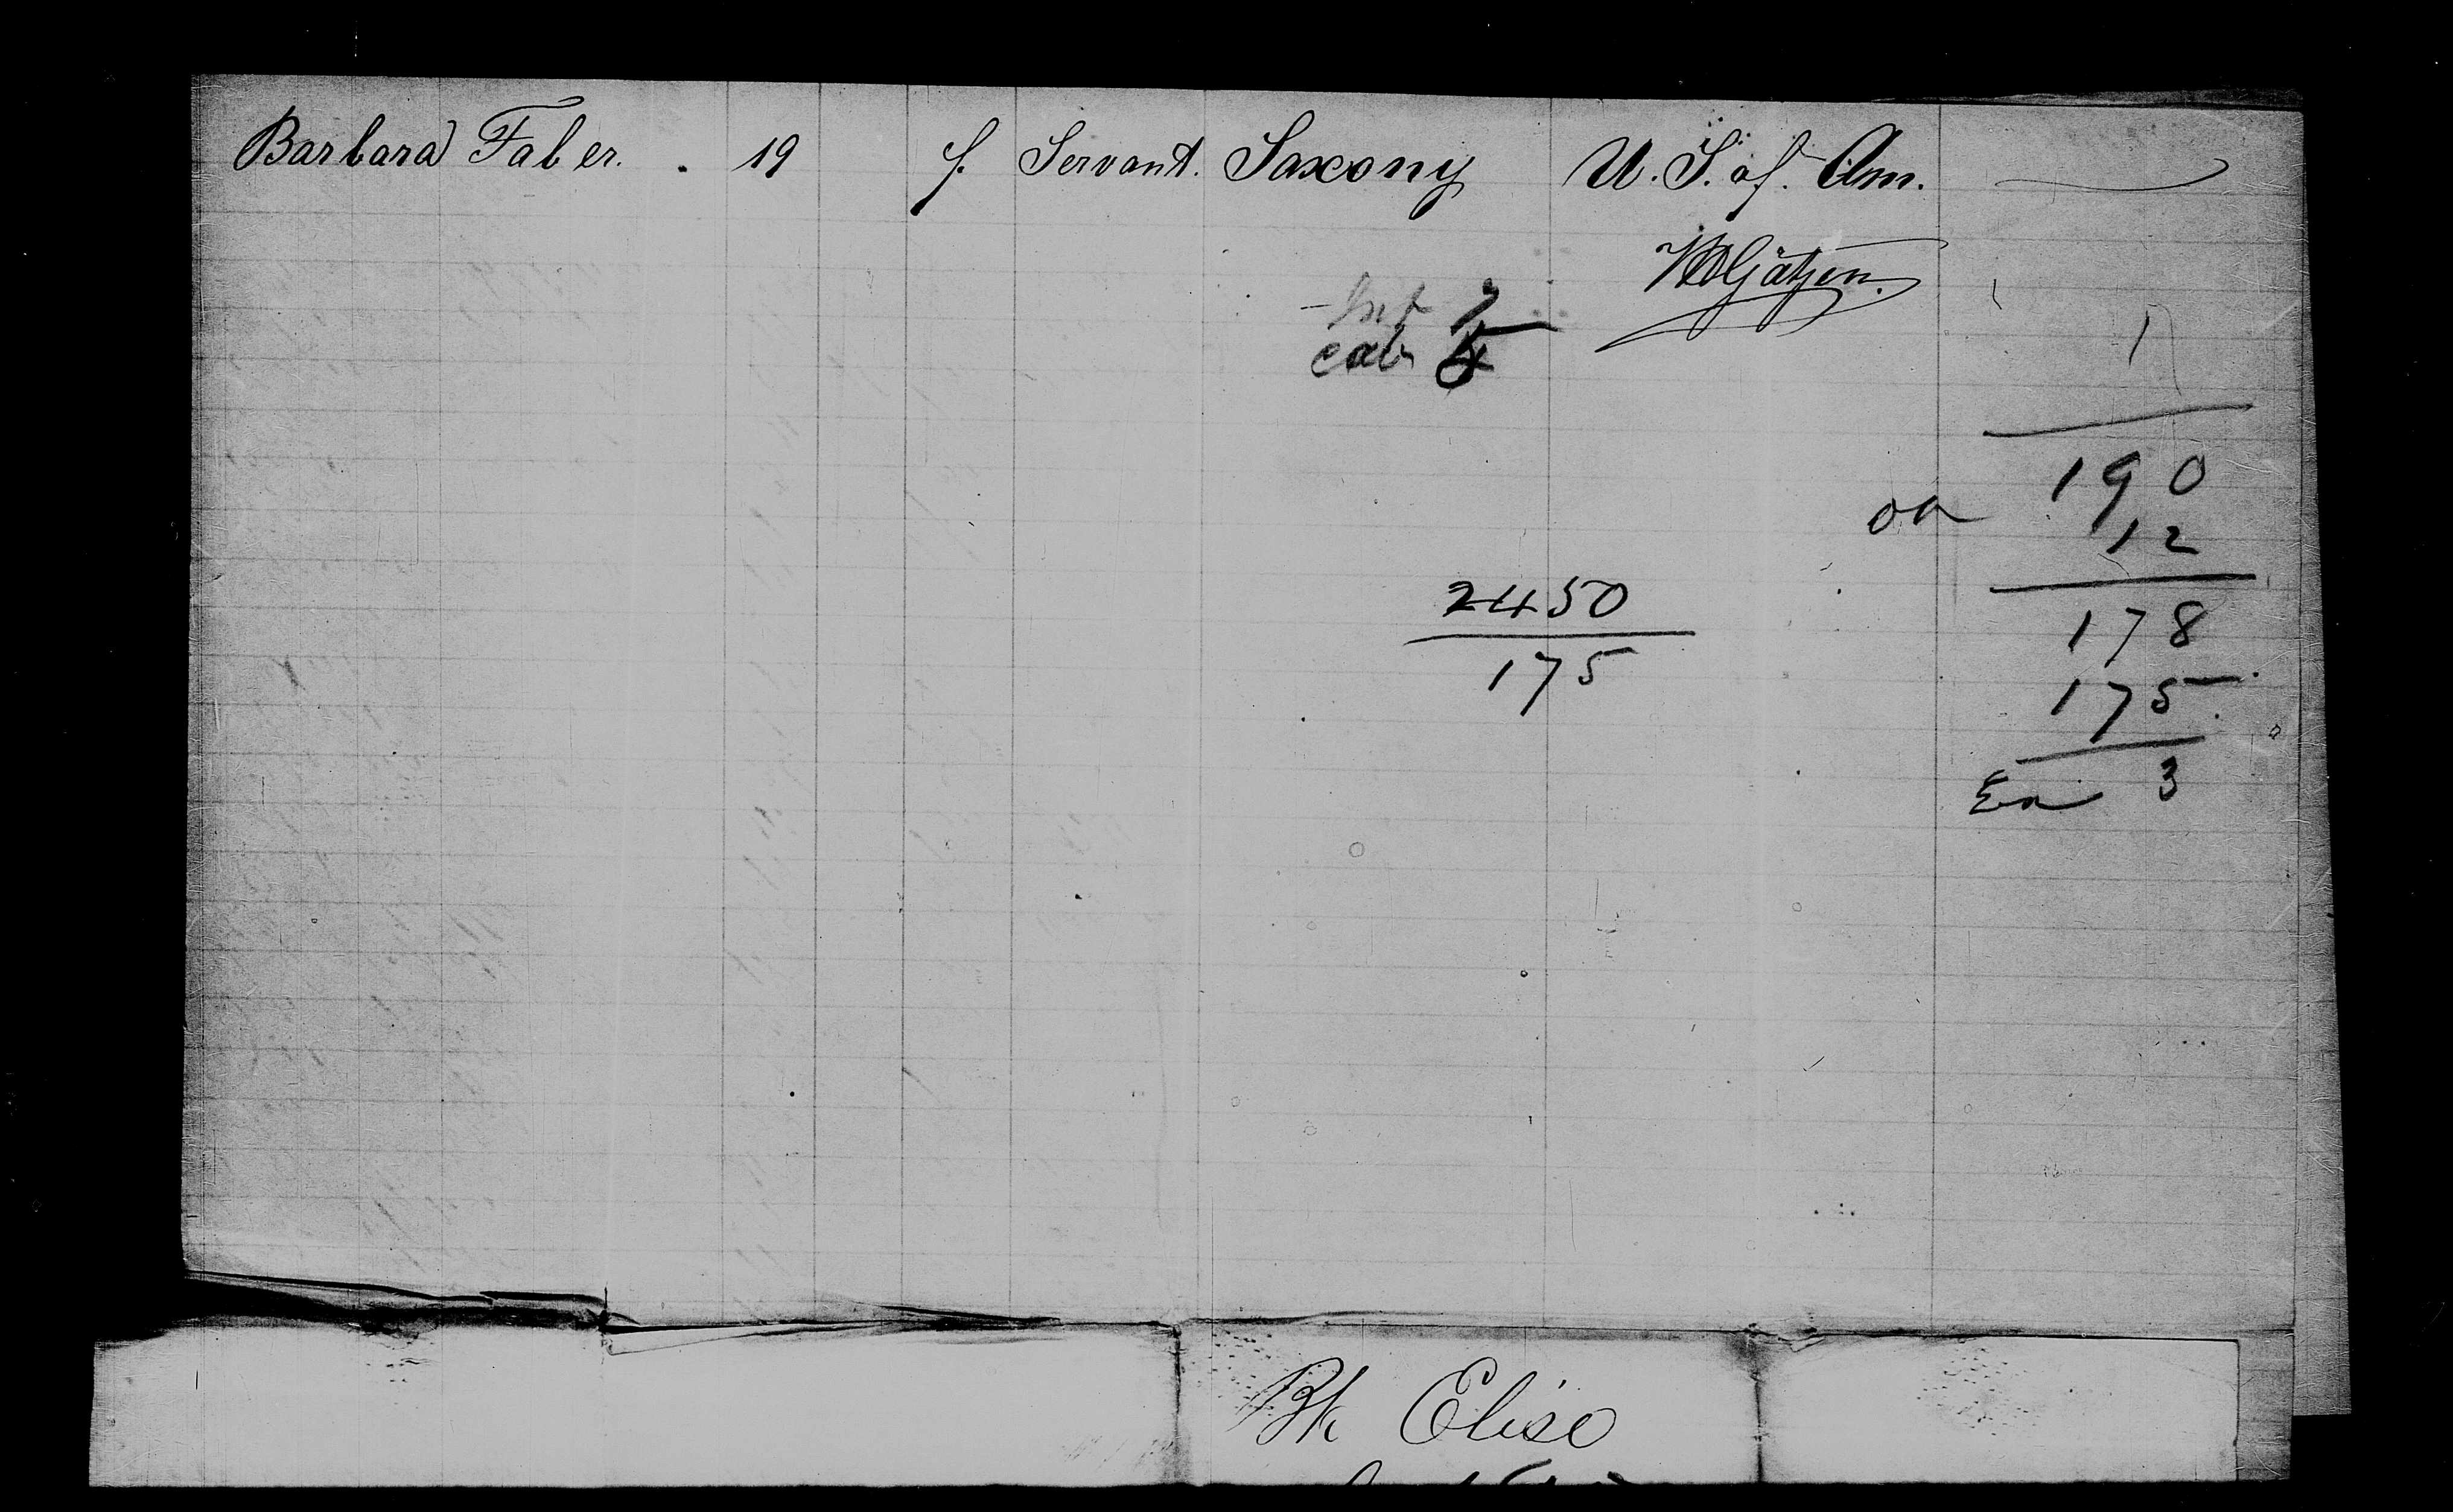 Barbara Faber. . 19 f. Servant. Saxony U. S. of. Am.
cab
190
12
178
175
3
2450
175
Bk Elise